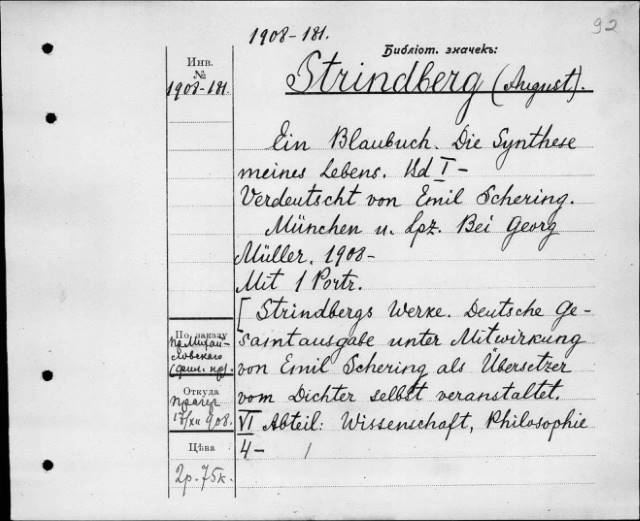 92
1908-181.
Библіот. значекъ:
Инв.
№
1908-181.
Strindberg (August).
Ein Blaubuch. Die Synthese
meines Lebens. Bd I-
Verdeutscht von Emil Schering.
München u. Lpz. Bei Georg
Müller. 1908-
Mit 1 Portr.
[Strindbergs Werke. Deutsche Ge-
samtausgabe unter Mitwirkung
von Emil Schering als Übersetzer
vom Dichter selbst veranstaltet.
VI Abteil: Wissenschaft, Philosophie
4- 1
По заказу
пр. Михай-
ловского
Откуда
908.
Цѣна
2р. 75к.